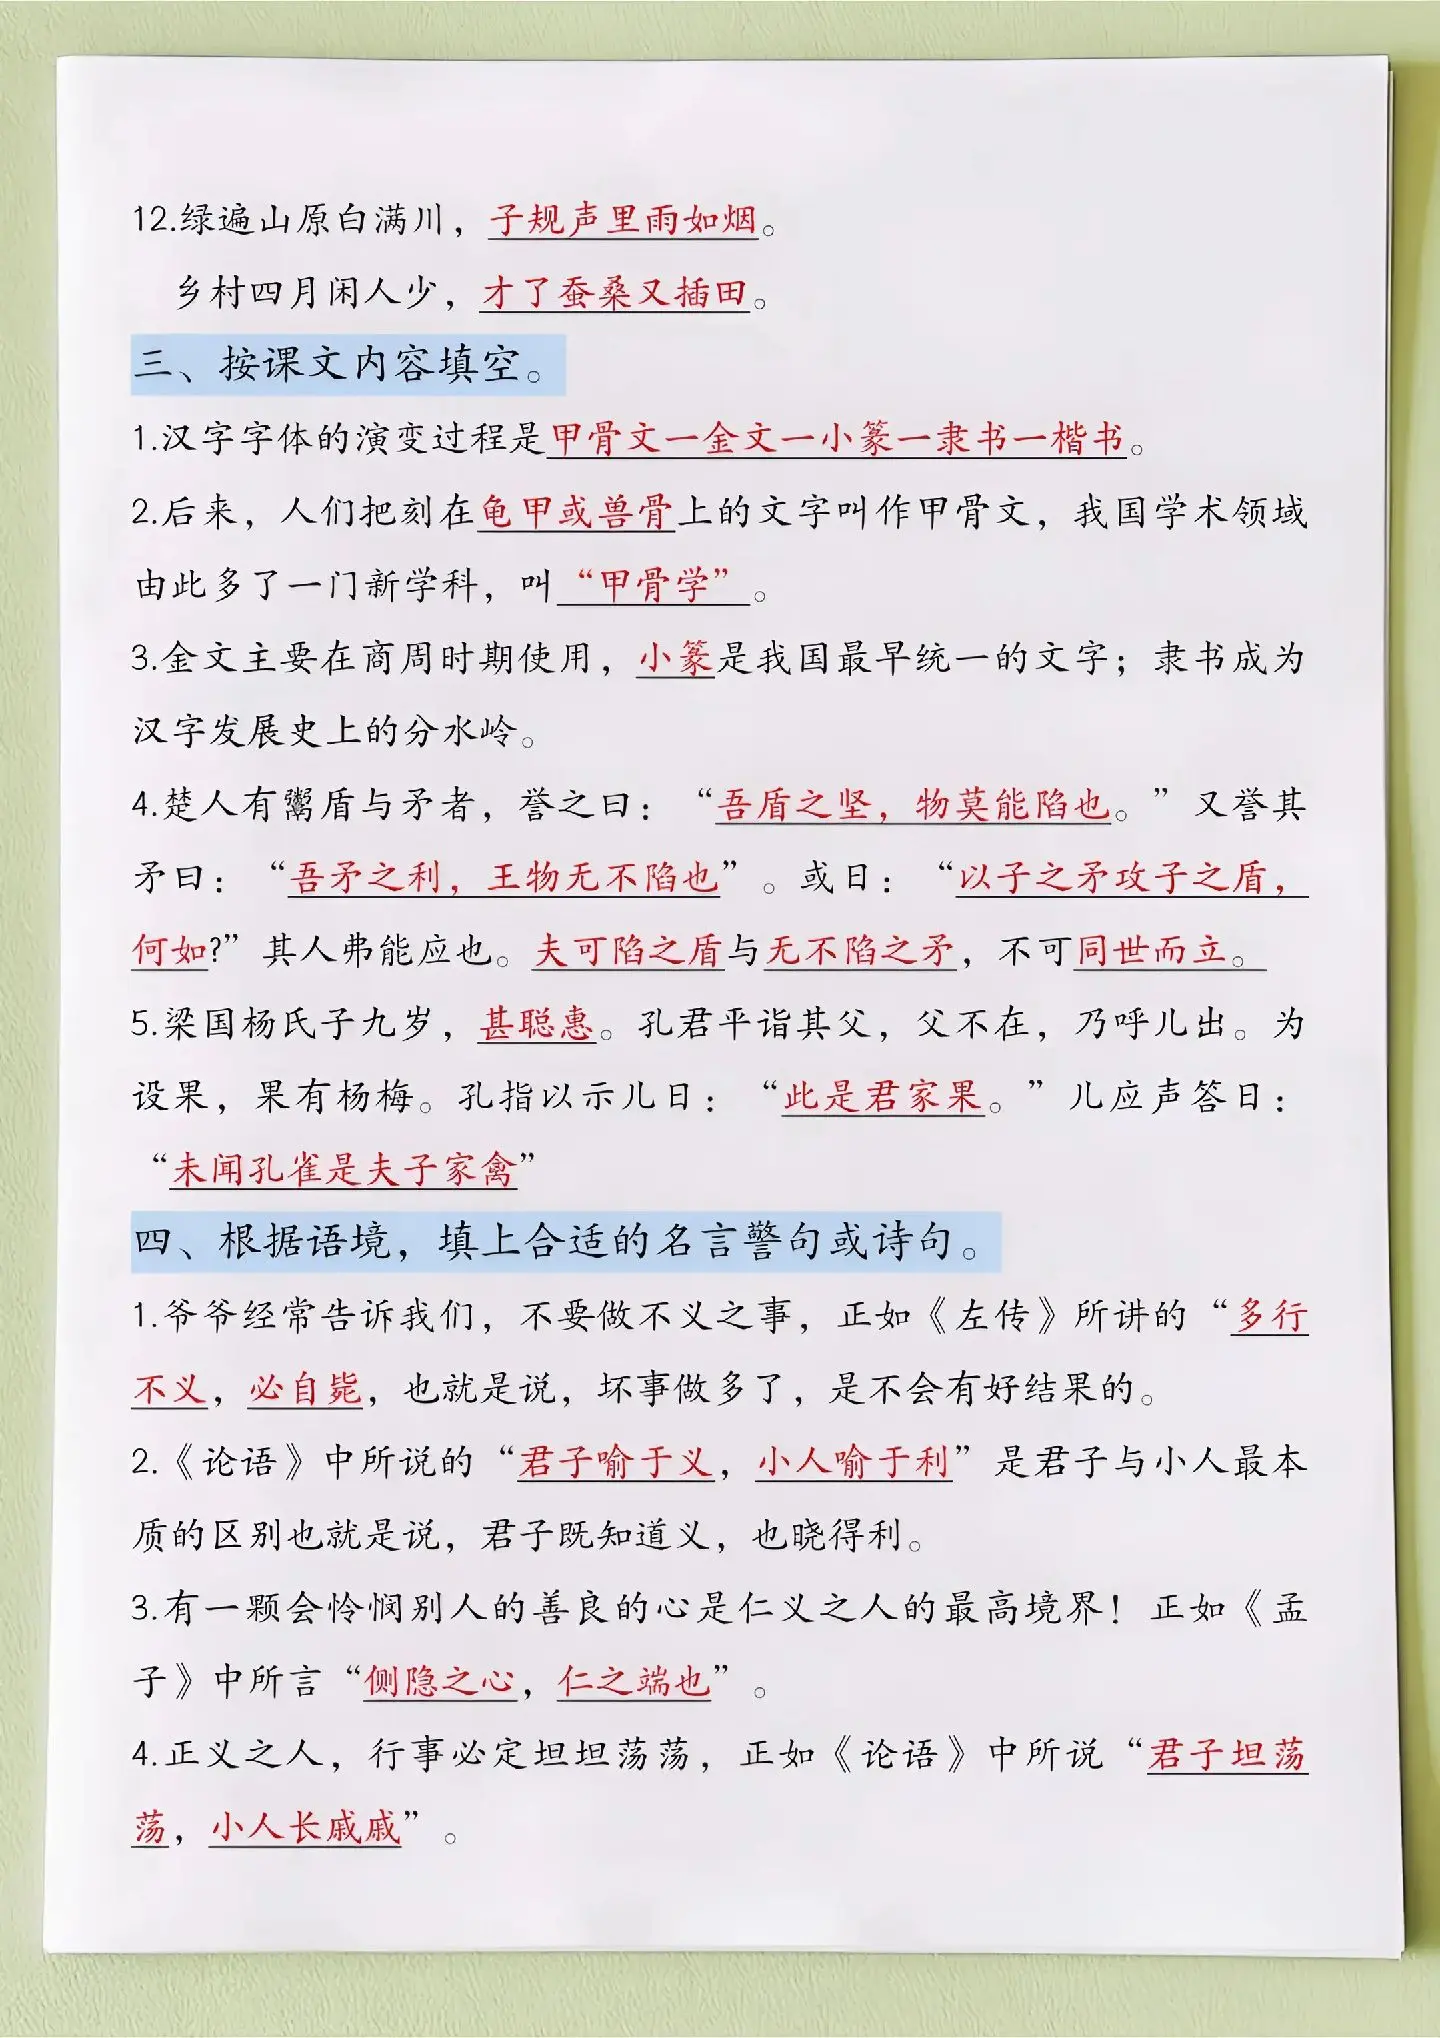 12.绿遍山原白满川，子规声里雨如烟。
乡村四月闲人少，才了蚕桑又插田。
三、按课文内容填空。
1.汉字字体的演变过程是甲骨文一金文一小篆一隶书一楷书。
2.后来，人们把刻在龟甲或兽骨上的文字叫作甲骨文，我国学术领域
由此多了一门新学科，叫“甲骨学”。
3.金文主要在商周时期使用，小篆是我国最早统一的文字；隶书成为
汉字发展史上的分水岭。
4.楚人有鬻盾与矛者，誉之曰：“吾盾之坚，物莫能陷也。”又誉其
矛曰：“吾矛之利，王物无不陷也”。或日：“以子之矛攻子之盾，
何如?”其人弗能应也。夫可陷之盾与无不陷之矛，不可同世而立。
5.梁国杨氏子九岁，甚聪惠。孔君平诣其父，父不在，乃呼儿出。为
设果，果有杨梅。孔指以示儿日：“此是君家果。”儿应声答日：
“未闻孔雀是夫子家禽”
四、根据语境，填上合适的名言警句或诗句。
1.爷爷经常告诉我们，不要做不义之事，正如《左传》所讲的“多行
不义，必自毙，也就是说，坏事做多了，是不会有好结果的。
2.《论语》中所说的“君子喻于义，小人喻于利”是君子与小人最本
质的区别也就是说，君子既知道义，也晓得利。
3.有一颗会怜悯别人的善良的心是仁义之人的最高境界！正如《孟
子》中所言“侧隐之心，仁之端也”。
4.正义之人，行事必定坦坦荡荡，正如《论语》中所说“君子坦荡
荡，小人长戚戚”。